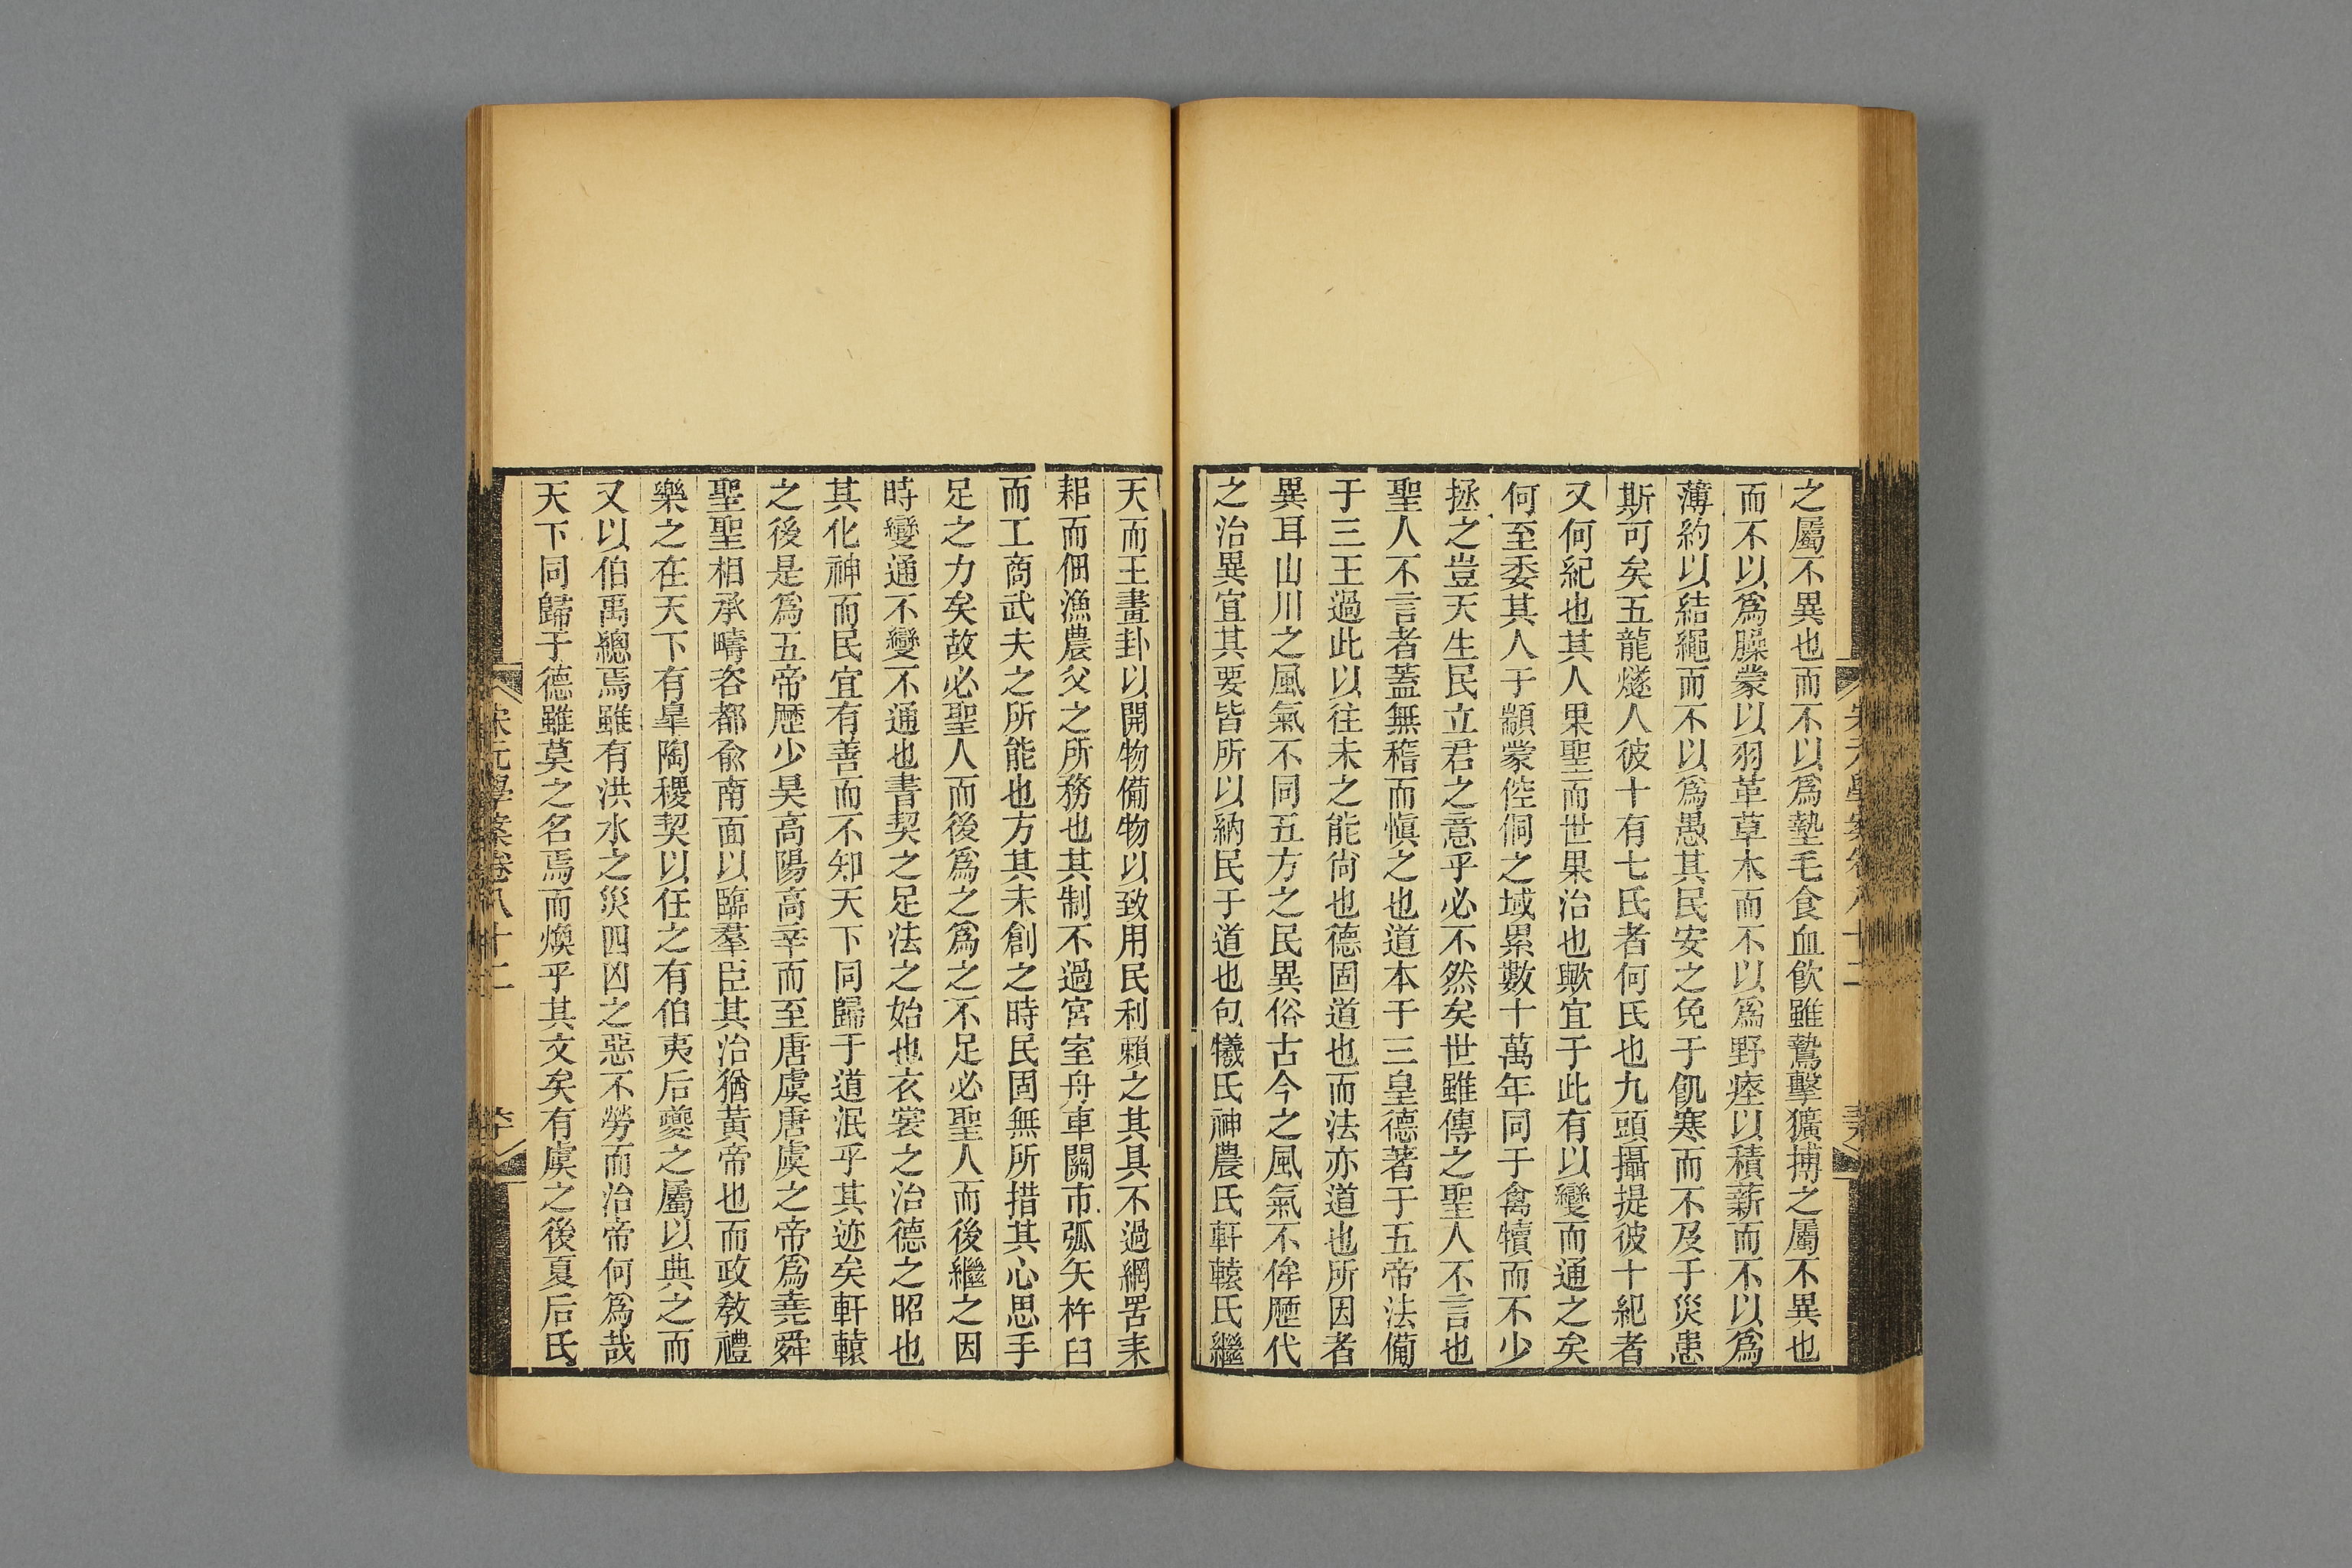 之屬不異也而不以爲墊毛食血飮雖鷙擊獷搏之屬不異也
而不以爲臊蒙以羽革草木而不以爲野瘞以積薪而不以爲
薄約以結繩而不以爲愚其民安之免于飢寒而不及于災患
斯可矣五龍燧人彼十有七氏者何氏也九頭攝提彼十紀者
又何紀也其人果聖而世果治也歟宜于此有以變而通之矣
何至委其人于顓蒙倥侗之域累數十萬年同于禽犢而不少
拯之豈天生民立君之意乎必不然矣世雖傳之聖人不言也
聖人不言者蓋無稽而愼之也道本于三皇德著于五帝法備
于三王過此以往未之能尙也德固道也而法亦道也所因者
異耳山川之風氣不同五方之民異俗古今之風氣不侔歷代
之治異宜其要皆所以納民于道也包犧氏神農氏軒轅氏繼
天而王畫卦以開物備物以致用民利賴之其具不過網罟耒
耜而佃漁農父之所務也其制不過宮室舟車關市弧矢杵臼
而工商武夫之所能也方其未創之時民固無所措其心思手
足之力矣故必聖人而後爲之爲之不足必聖人而後繼之因
時變通不變不通也書契之足法之始也衣裳之治德之昭也
其化神而民宜有善而不知天下同歸于道泯乎其迹矣軒轅
之後是爲五帝歷少昊高陽高辛而至唐虞唐虞之帝爲堯舜
聖聖相承疇咨都兪南面以臨羣臣其治猶黃帝也而政敎禮
樂之在天下有皐陶稷契以任之有伯夷后夔之屬以典之而
又以伯禹總焉雖有洪水之災四凶之惡不勞而治帝何爲哉
天下同歸于德雖莫之名焉而煥乎其文矣有虞之後夏后氏
宋元學案卷八十二